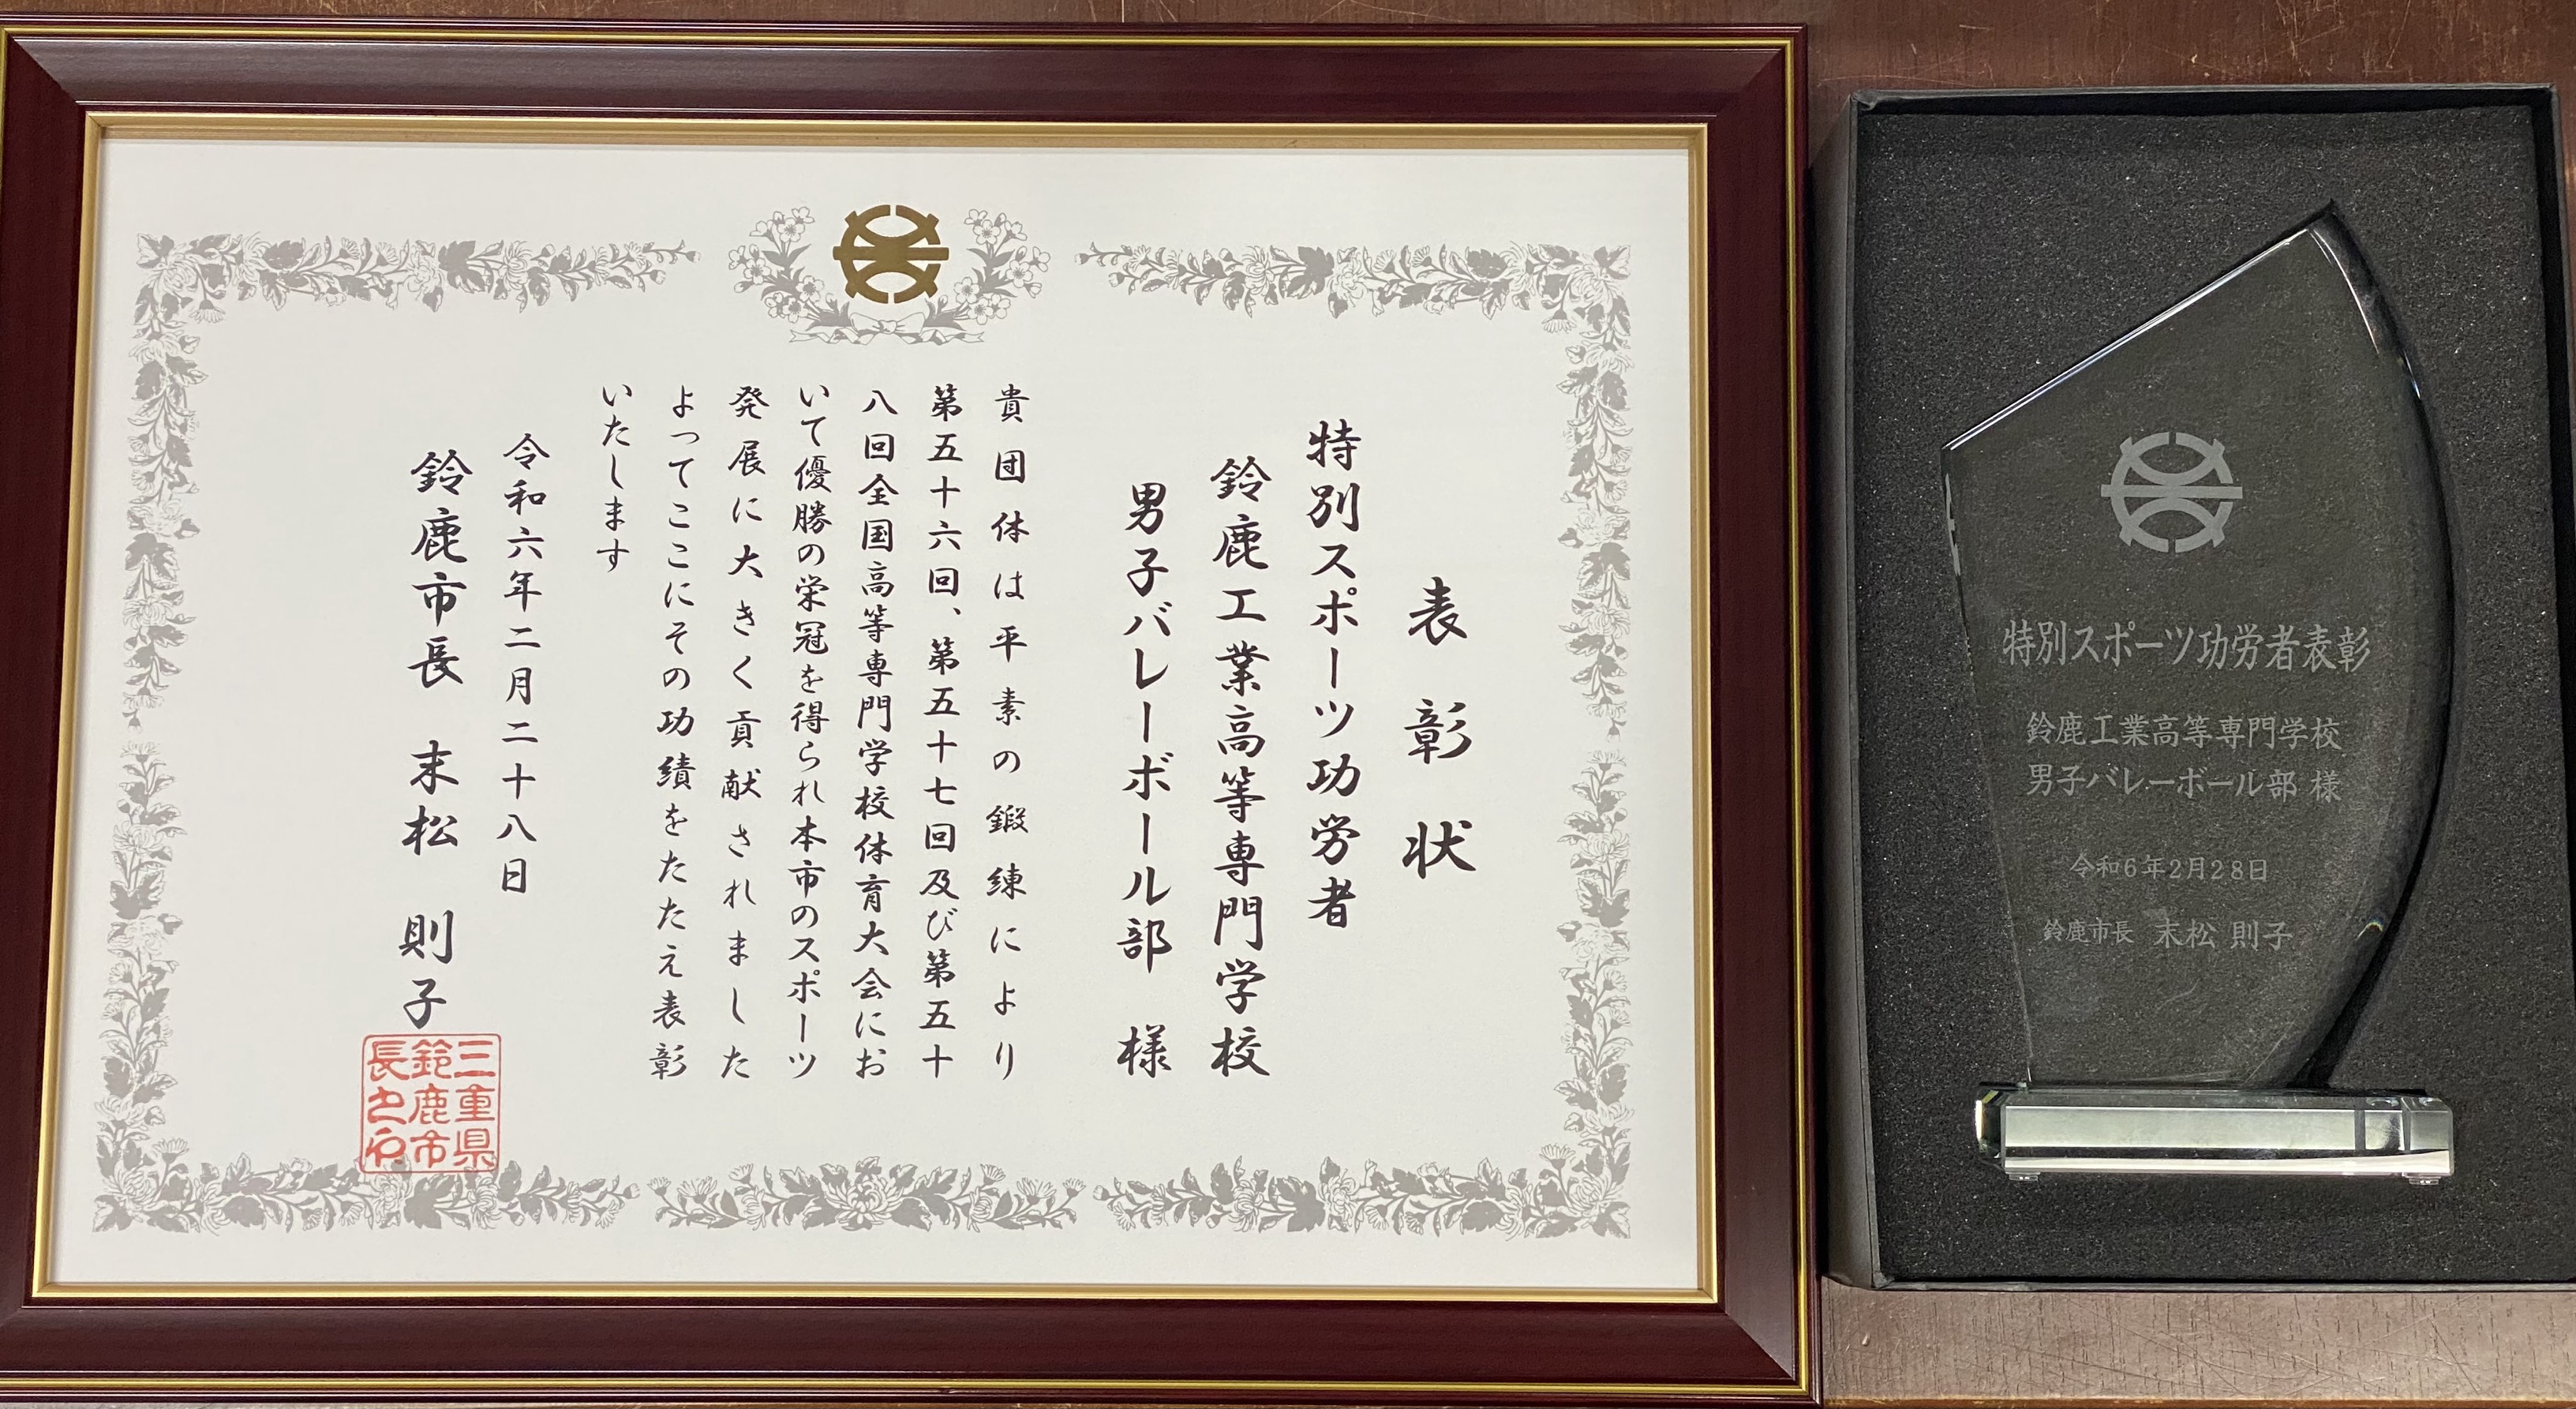 表彰状
特別スポーツ功労者
鈴鹿工業高等専門学校
男子バレーボール部 様
貴団体は平素の鍛練により
第五十六回、第五十七回及び第五十
八回全国高等専門学校体育大会にお
いて優勝の栄冠を得られ本市のスポーツ
発展に大きく貢献されました
よってここにその功績をたたえ表彰
いたします
令和六年二月二十八日
鈴鹿市長 末松 則子
三重県
鈴鹿市
長之印
特別スポーツ功労者表彰
鈴鹿工業高等専門学校
男子バレーボール部 様
令和6年2月28日
鈴鹿市長 末松 則子